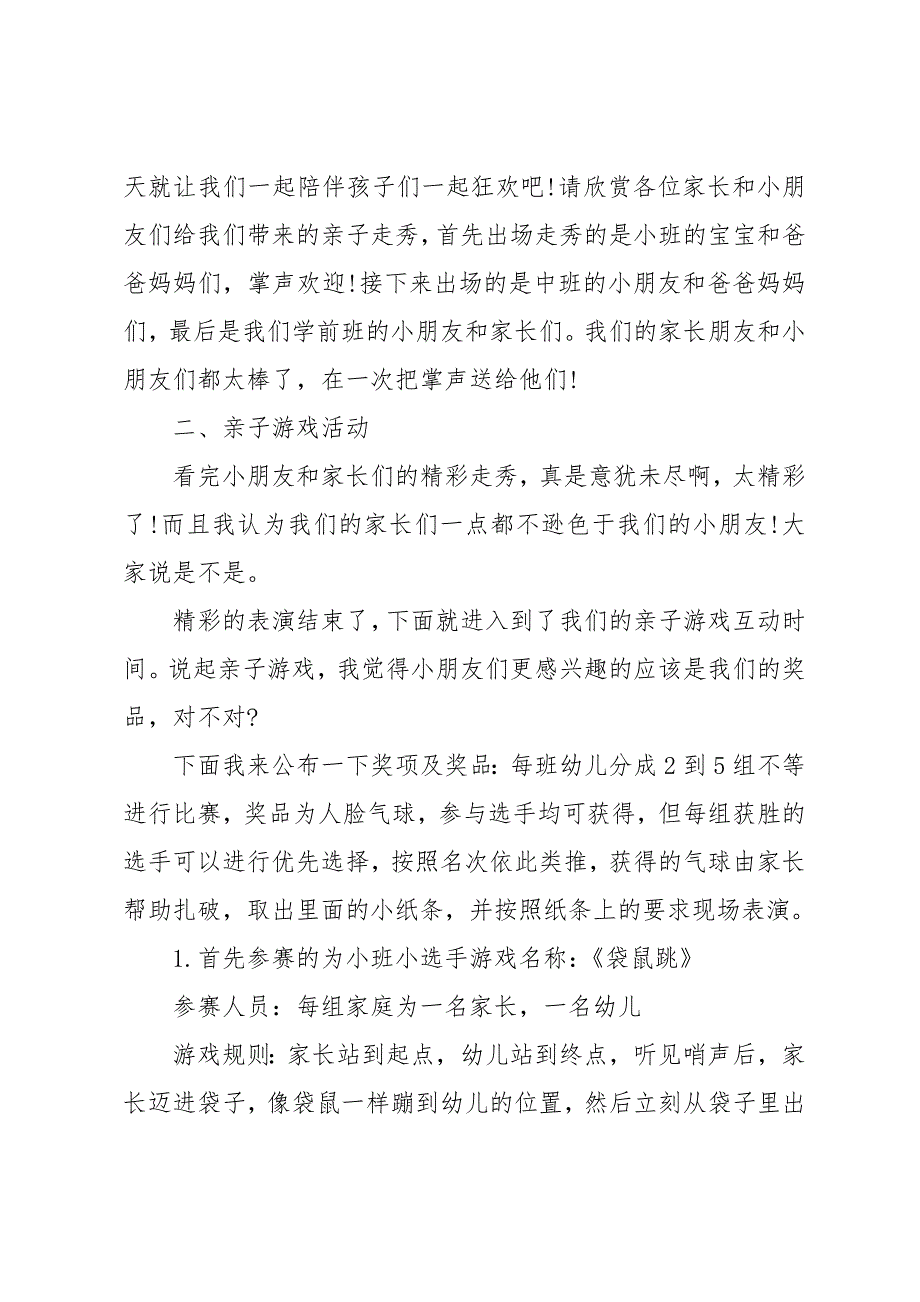 天就让我们一起陪伴孩子们一起狂欢吧!请欣赏各位家长和小朋
友们给我们带来的亲子走秀，首先出场走秀的是小班的宝宝和爸
爸妈妈们，掌声欢迎!接下来出场的是中班的小朋友和爸爸妈妈
们，最后是我们学前班的小朋友和家长们。我们的家长朋友和小
朋友们都太棒了，在一次把掌声送给他们!
二、亲子游戏活动
看完小朋友和家长们的精彩走秀，真是意犹未尽啊，太精彩
了!而且我认为我们的家长们一点都不逊色于我们的小朋友!大
家说是不是。
精彩的表演结束了，下面就进入到了我们的亲子游戏互动时
间。说起亲子游戏，我觉得小朋友们更感兴趣的应该是我们的奖
品，对不对?
下面我来公布一下奖项及奖品：每班幼儿分成2到5组不等
进行比赛，奖品为人脸气球，参与选手均可获得，但每组获胜的
选手可以进行优先选择，按照名次依此类推，获得的气球由家长
帮助扎破，取出里面的小纸条，并按照纸条上的要求现场表演。
1.首先参赛的为小班小选手游戏名称：《袋鼠跳》
参赛人员：每组家庭为一名家长，一名幼儿
游戏规则：家长站到起点，幼儿站到终点，听见哨声后，家
长迈进袋子，像袋鼠一样蹦到幼儿的位置，然后立刻从袋子里出